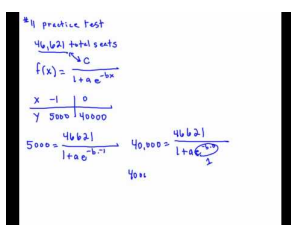 #11 practice test
46,621 total seats
C
f(x) = ─── 1 + a e^-bx
X -1 0
Y 5000 40000
5000 = 46621 / 1 + a e^-b·-1 40,000 = 46621 / 1 + a e^-b·0
1
400